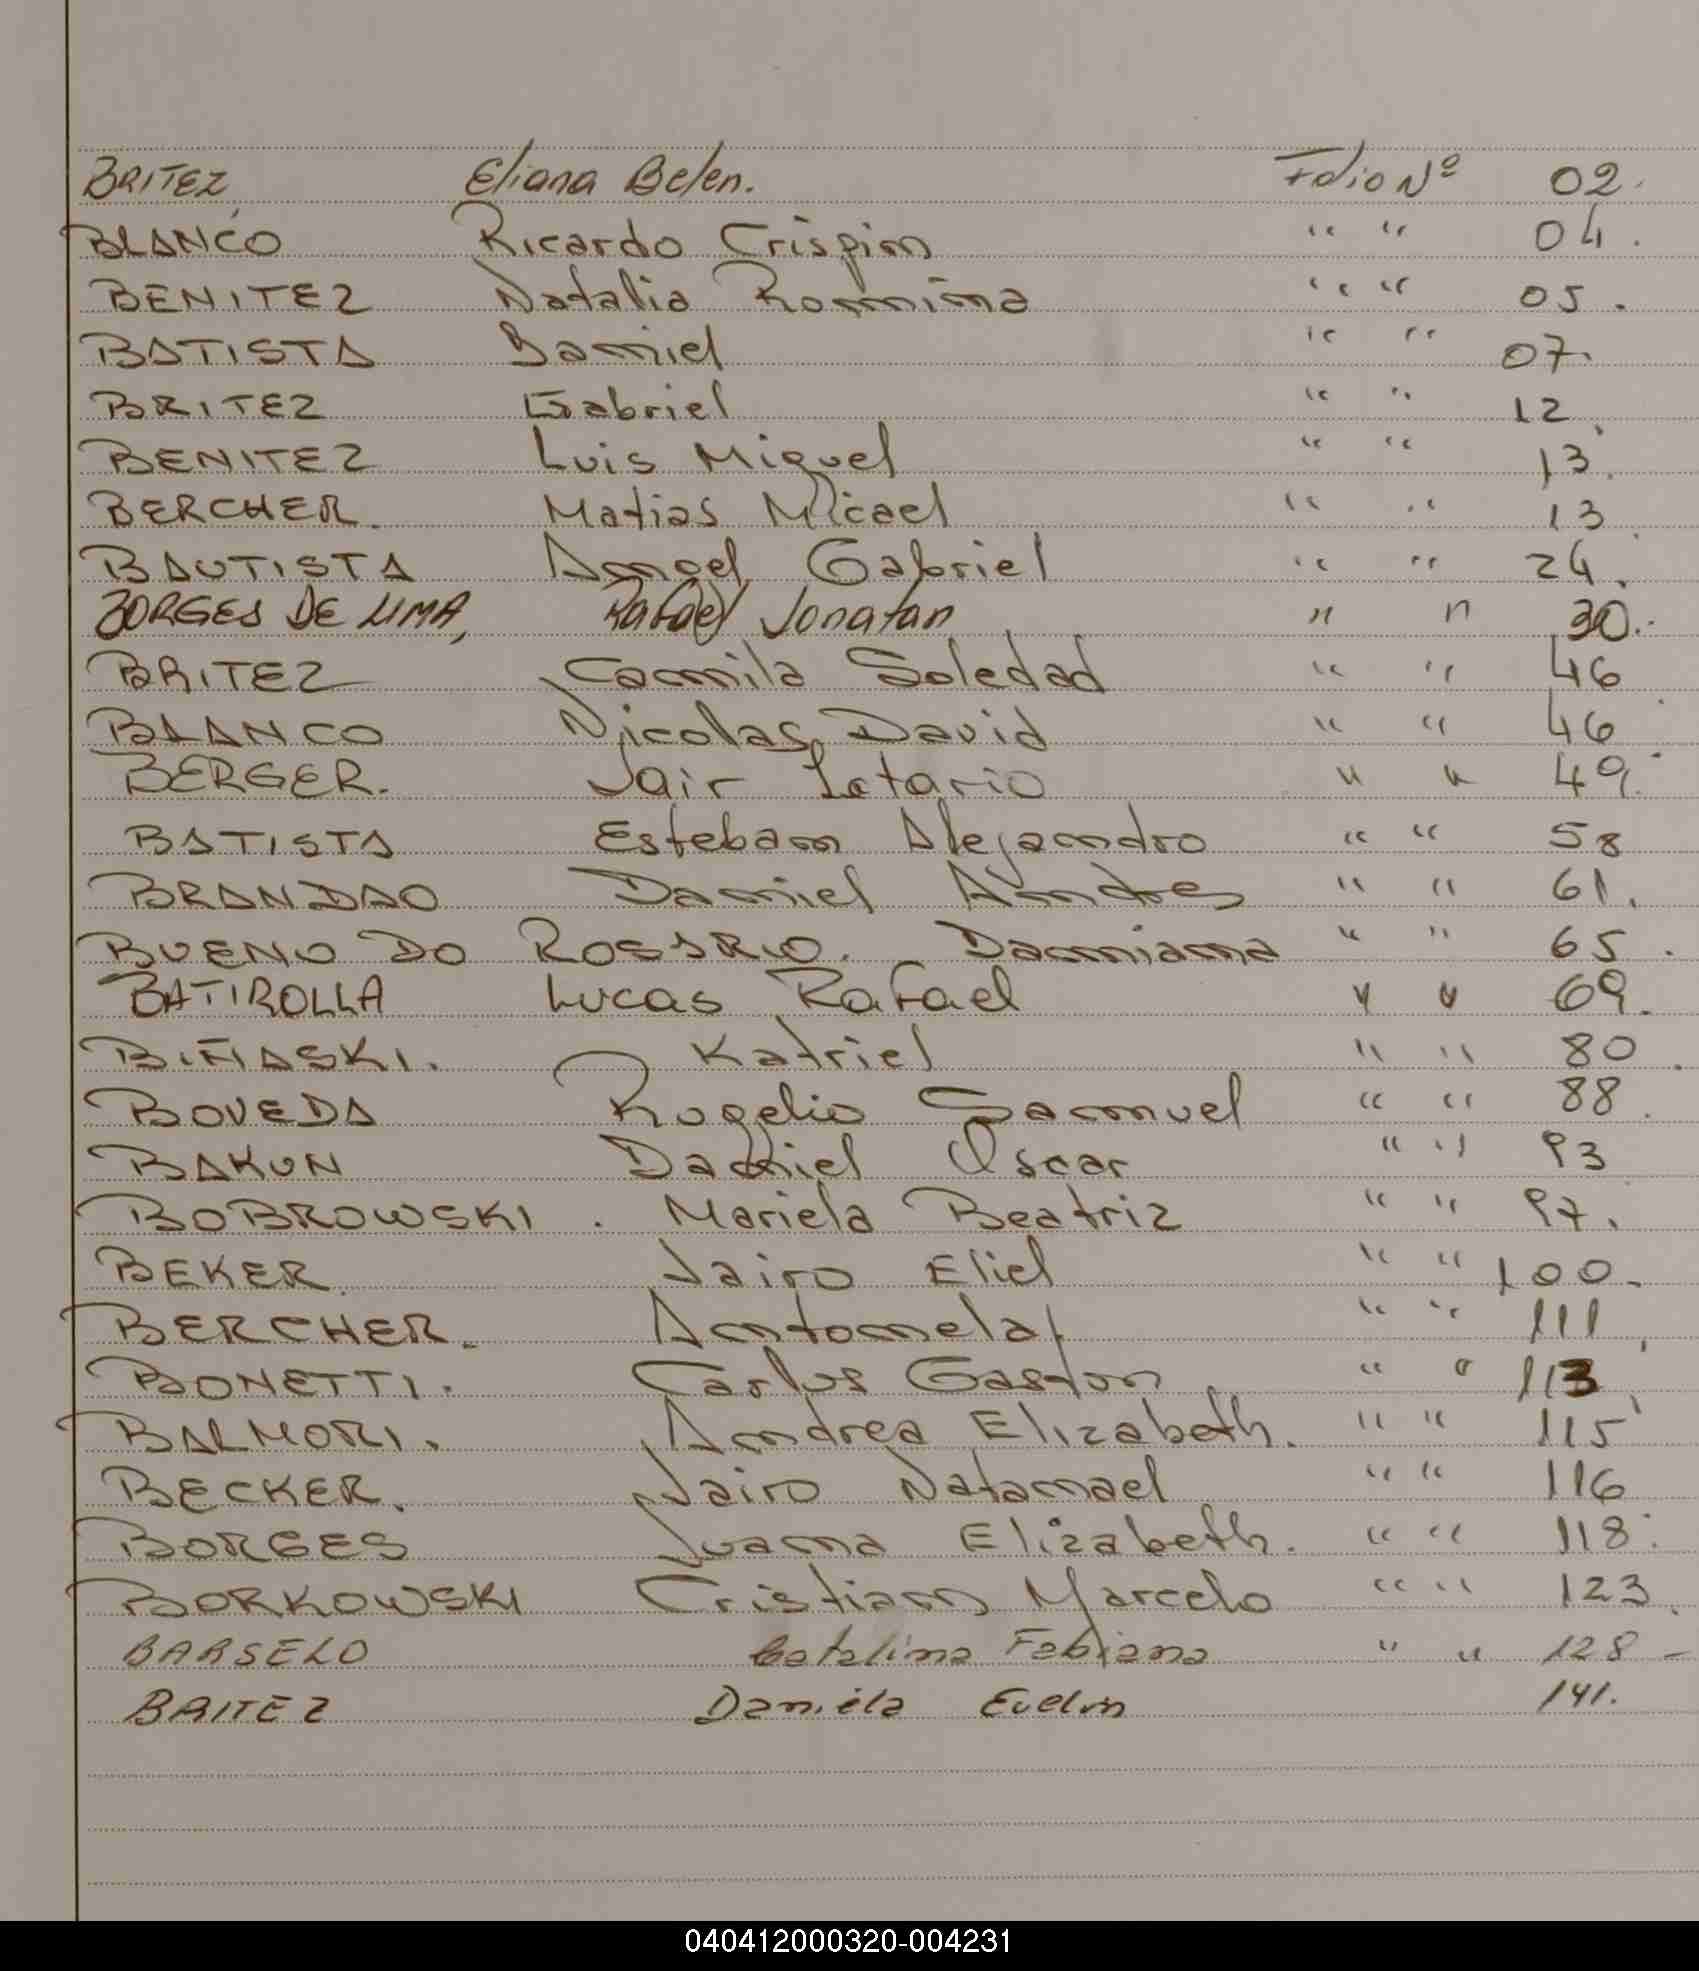 BRITEZ, Eliana Belen. Folio Nº 02.
BLANCO Ricardo Crispin " " 04.
BENITEZ Natalia Rommina " " 05.
BATISTA Daniel " " 07.
BRITEZ Gabriel " " 12.
BENITEZ Luis Miguel " " 13.
BERCHER. Matias Micael " " 13.
BAUTISTA Angel Gabriel " " 24.
BORGES DE LIMA, Rafael Jonatan " " 30.-
BRITEZ Camila Soledad " " 46
BLANCO Nicolas David " " 46
BERGER. Jair Lotario " " 49.
BATISTA Esteban Alejandro " " 58
BRANDAO Daniel Andres " " 61.
BUENO DO ROSARIO. Damiana " " 65.
BATIROLLA Lucas Rafael " " 69.
BIÑASKI. Katriel " " 80.
BOVEDA Rogelio Samuel " " 88.
BAKUN Daniel Oscar " " 93
BOBROWSKI. Mariela Beatriz " " 97.
BEKER. Jairo Eliel " " 100.
BERCHER. Antonela " " 111.
BONETTI. Carlos Gaston " " 113.
BALMORI. Andrea Elizabeth. " " 115
BECKER. Jairo Natanael " " 116
BORGES Juana Elizabeth. " " 118.
BORKOWSKI Cristian Marcelo " " 123.
BARSELO Catalina Fabiana " " 128-
BRITEZ Daniela Evelin 141.
040412000320-004231